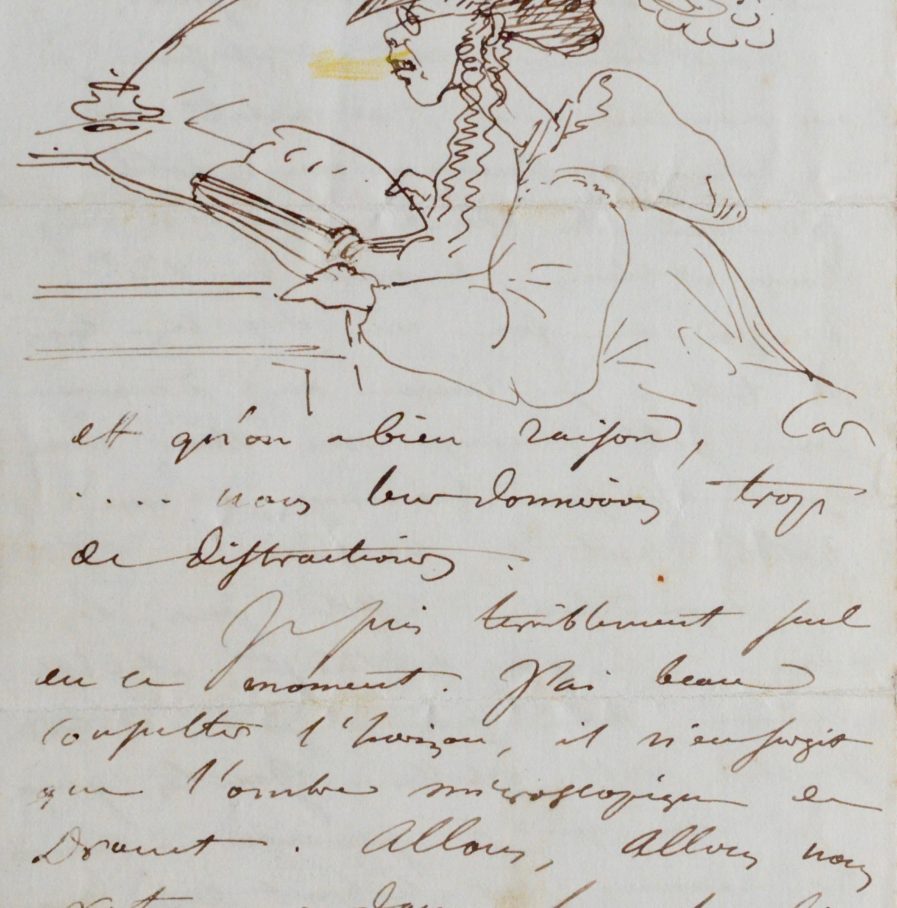 et qu'on a bien raison, Car
.... nous leur donnerions trop
de distractions.
Je suis terriblement seul
en ce moment. J'ai beau
consulter l'horizon, il n'en surgit
que l'ombre microscopique de
Drouet. Allons, Allons nous